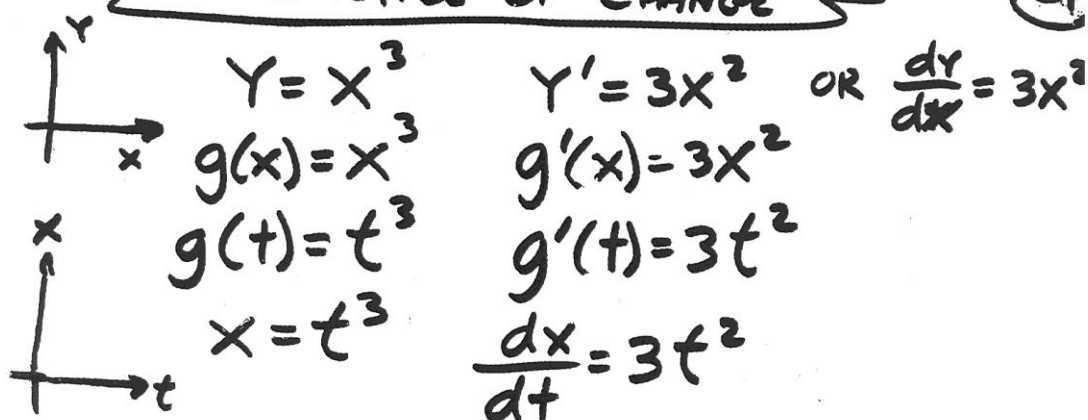 OF CHANGE
Y
Y = x³ Y' = 3x² OR dy/dx = 3x²
x
g(x) = x³ g'(x) = 3x²
x
g(t) = t³ g'(t) = 3t²
x = t³ dx/dt = 3t²
t